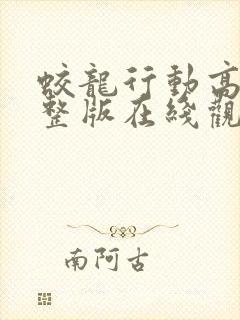 蛟龍行動高
整版在綫觀
南阿古